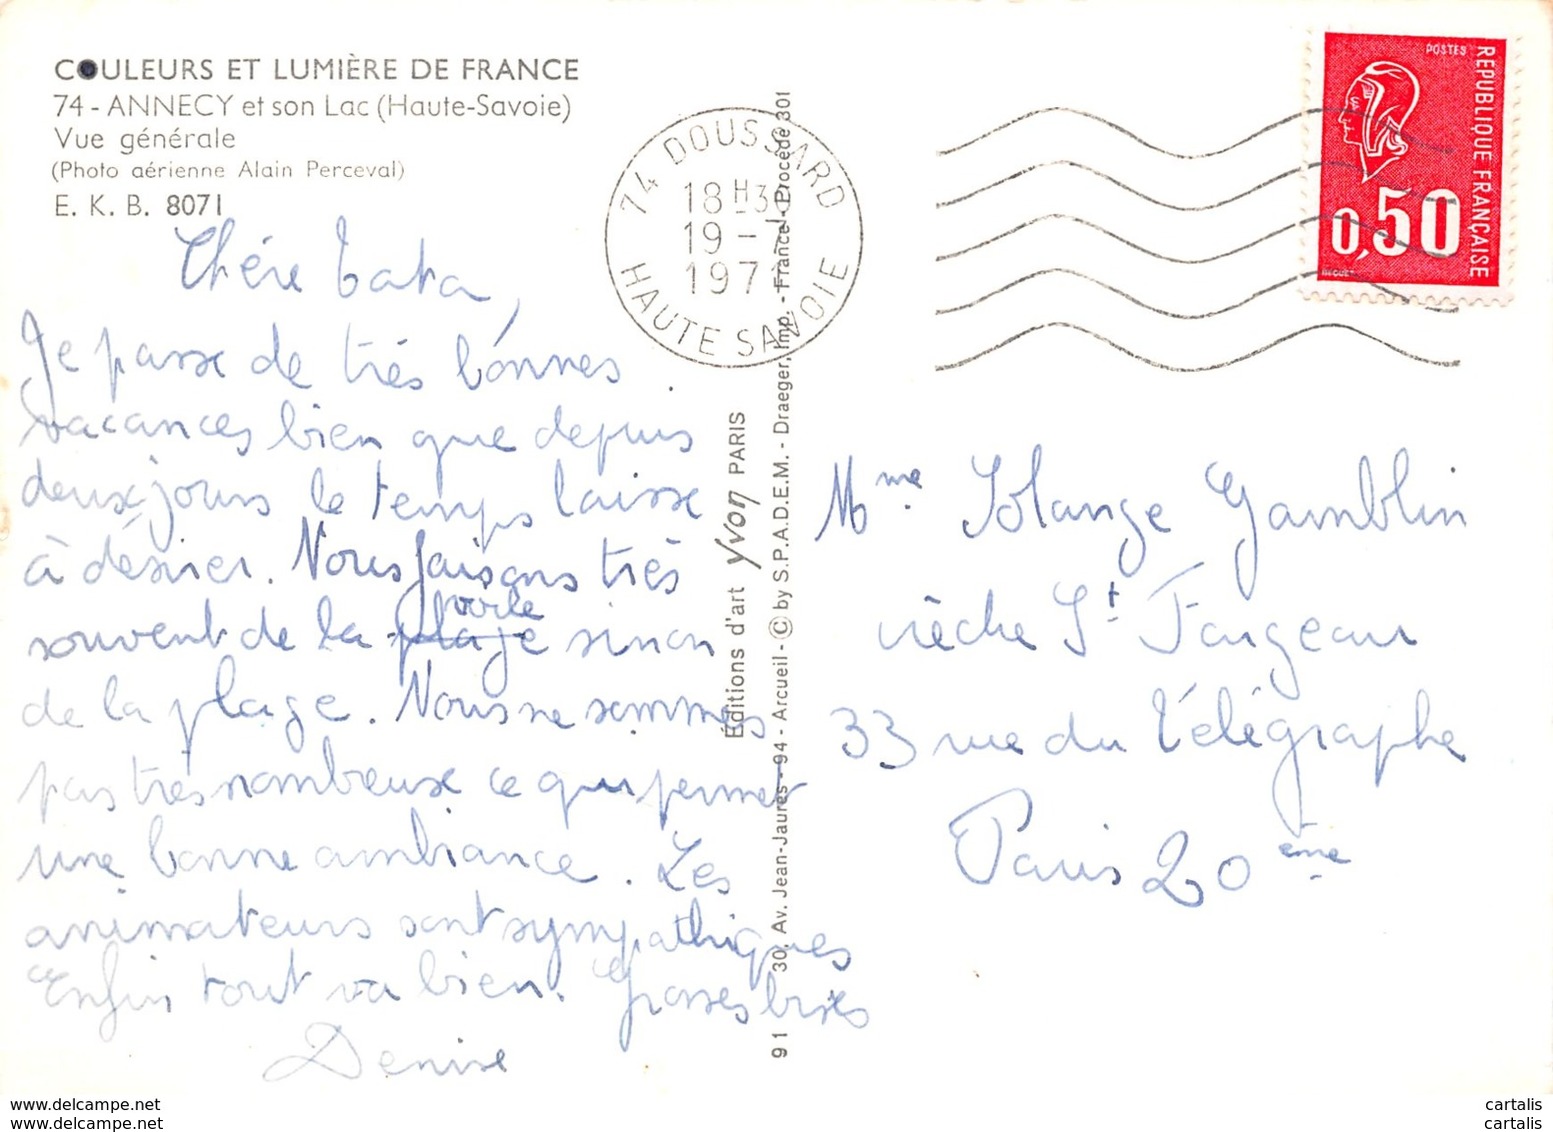 COULEURS ET LUMIÈRE DE FRANCE
74 - ANNECY et son Lac (Haute-Savoie)
Vue générale
(Photo aérienne Alain Perceval)
E. K. B. 8071
Chére tata,
Je passe de trés bonnes
vacances bien que depuis
deux jours le temps laisse
à désirer. Nous faisons trés
voile
souvent de la plage sinon
de la plage. Nous ne sommes
pas trés nombreux ce qui permet
une bonne ambiance. Les
animateurs sont sympathiques
Enfin tout va bien. Grosses bises
Denise
74 DOUSSARD
18 H 3
19 -
197
HAUTE SAVOIE
Éditions d'art Yvon PARIS
91 30, Av. Jean-Jaurès - 94 - Arcueil - © by S.P.A.D.E.M. - Draeger, Imp. - France - Procédé 301
POSTES
REPUBLIQUE FRANÇAISE
0,50
BEQUET
Mme Solange Gamblin
crèche St Fargeau
33 rue du Télégraphe
Paris 20 ème
www.delcampe.net
www.delcampe.net
cartalis
cartalis